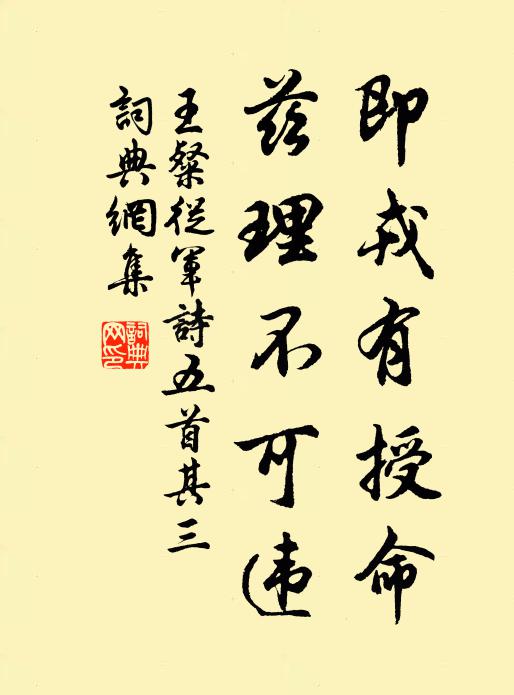 即戎有授命
茲理不可違
王粲從軍詩五首其三
詞典網集
詞典網印